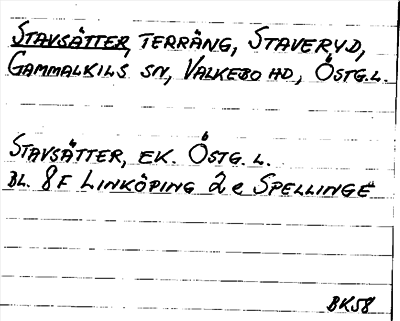 STAVSÄTTER, TERRÄNG, STAVERYD,
GAMMALKILS SN, VALKEBO HD, ÖSTG.L.
STAVSÄTTER, EK. ÖSTG. L.
BL. 8F LINKÖPING 2e SPELLINGE
BK58